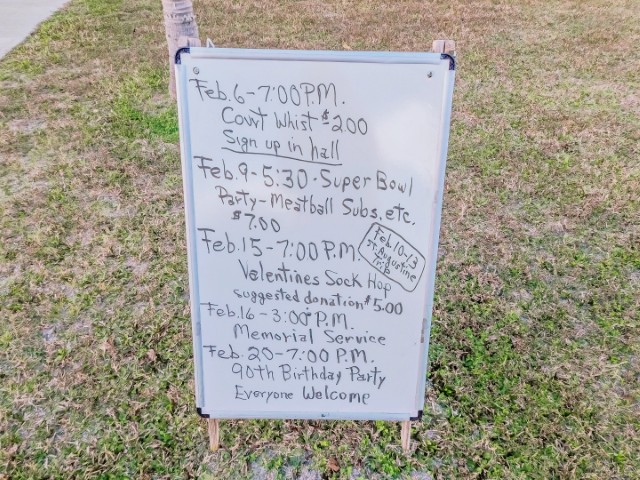 Feb. 6-7:00 P.M.
Court Whist - $2.00
Sign up in hall
Feb. 9-5:30 · Super Bowl
Party-Meatball Subs, etc.
$7.00
Feb. 15-7:00 P.M.
Feb. 10-13
St. Augustine
Trip
Valentines Sock Hop
suggested donation $5.00
Feb. 16-3:00 P.M.
Memorial Service
Feb. 20-7:00 P.M.
90th Birthday Party
Everyone Welcome